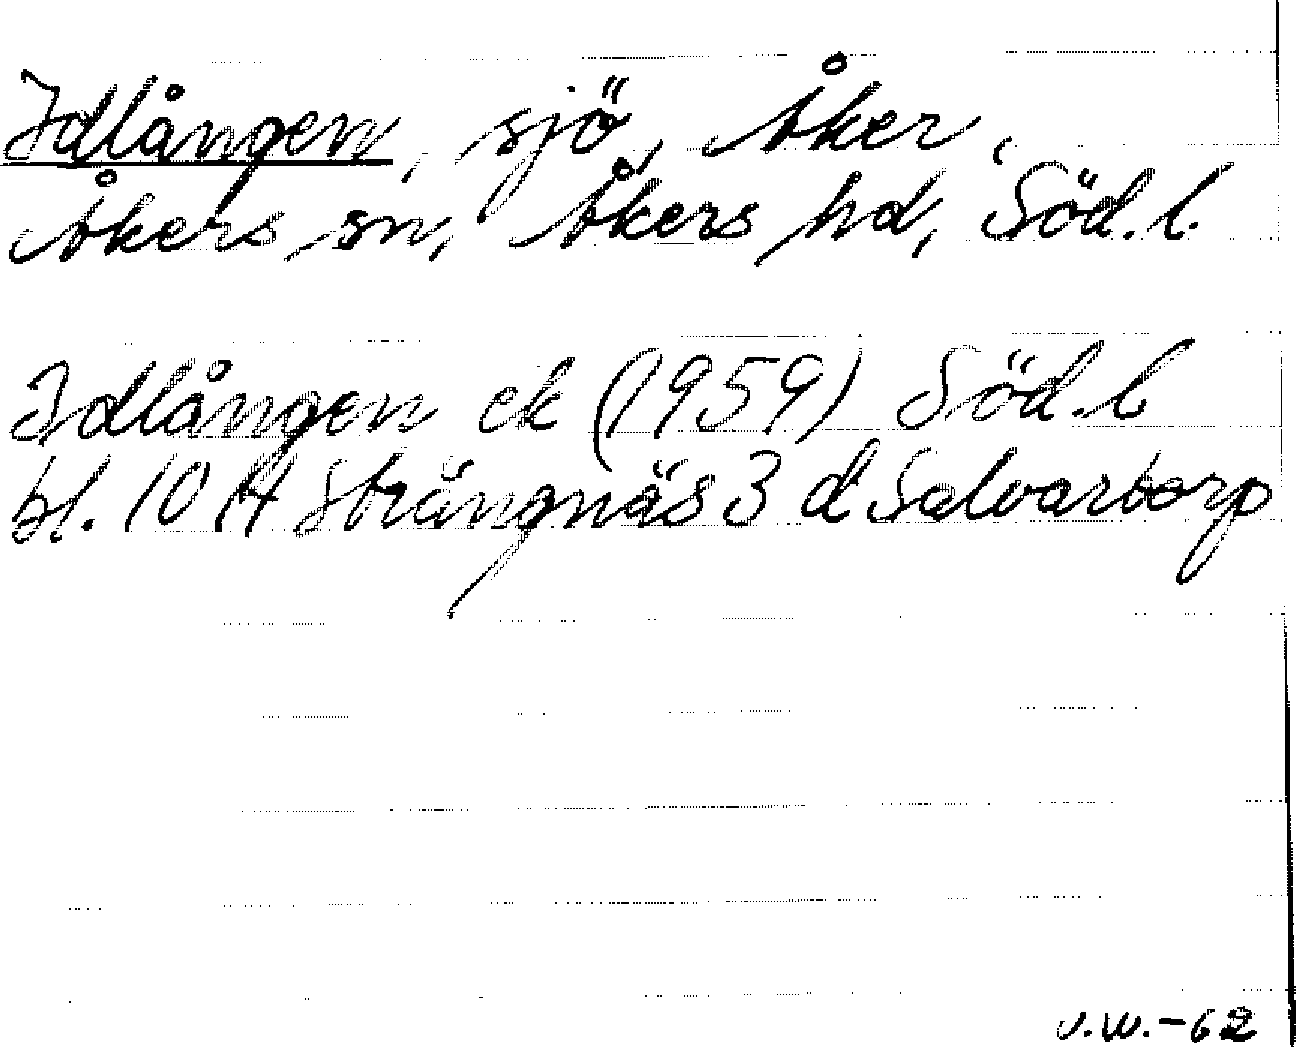 Idlången, sjö, Åker,
Åkers sn, Åkers hd, Söd. l.
Idlången ek (1959) Söd. l
bl. 10 H Strängnäs 3 d Salvartorp
V.W.-62